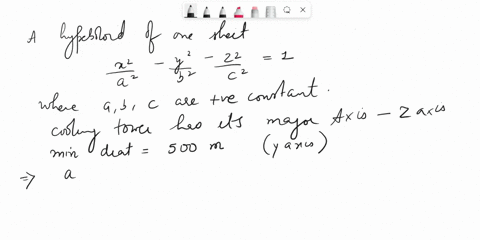 A hypeboloid of one sheet
x²/a² - y²/b² - z²/c² = 1
where a, b, c are +ve constant.
cooling tower has its major Axis - Z axis
min diat = 500 m (y axis)
⇒ a